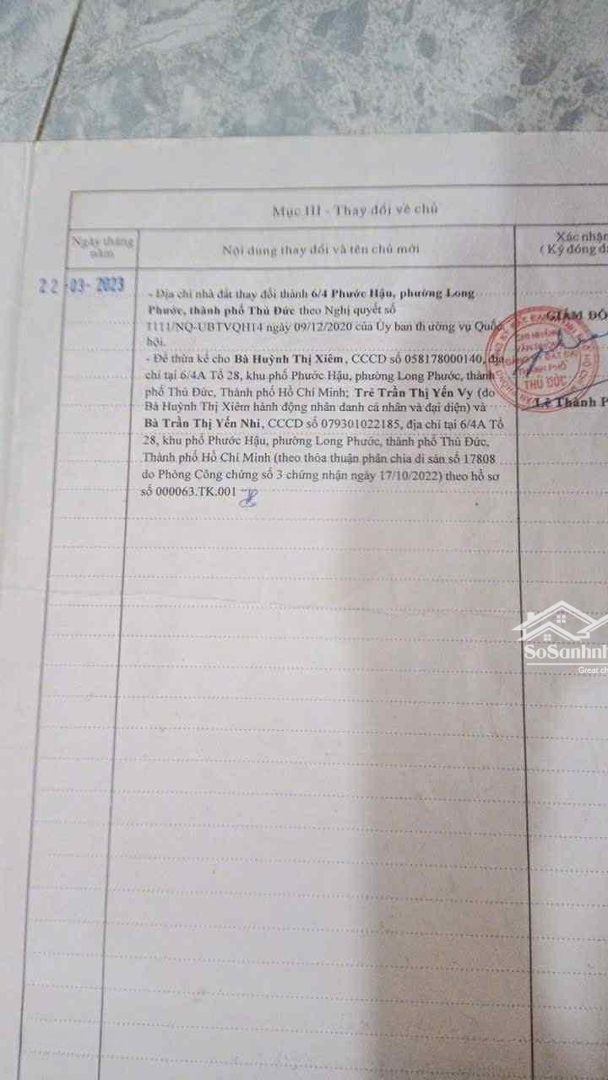 Mục III - Thay đổi về chủ
Ngày tháng năm
Nội dung thay đổi và tên chủ mới
Xác nhận
( Ký đóng dấ
22-03-2023
- Địa chỉ nhà đất thay đổi thành 6/4 Phước Hậu, phường Long
Phước, thành phố Thủ Đức theo Nghị quyết số
1111/NQ-UBTVQH14 ngày 09/12/2020 của Ủy ban thường vụ Quốc
hội.
- Để thừa kế cho Bà Huỳnh Thị Xiêm, CCCD số 058178000140, địa
chỉ tại 6/4A Tổ 28, khu phố Phước Hậu, phường Long Phước, thành
phố Thủ Đức, Thành phố Hồ Chí Minh; Trẻ Trần Thị Yến Vy (do
Bà Huỳnh Thị Xiêm hành động nhân danh cá nhân và đại diện) và
Bà Trần Thị Yến Nhi, CCCD số 079301022185, địa chỉ tại 6/4A Tổ
28, khu phố Phước Hậu, phường Long Phước, thành phố Thủ Đức,
Thành phố Hồ Chí Minh (theo thỏa thuận phân chia di sản số 17808
do Phòng Công chứng số 3 chứng nhận ngày 17/10/2022) theo hồ sơ
số 000063.TK.001
GIÁM ĐỐ
THÀNH PHỐ
THỦ ĐỨC
Lê Thành P
SoSanhnh
Great ch